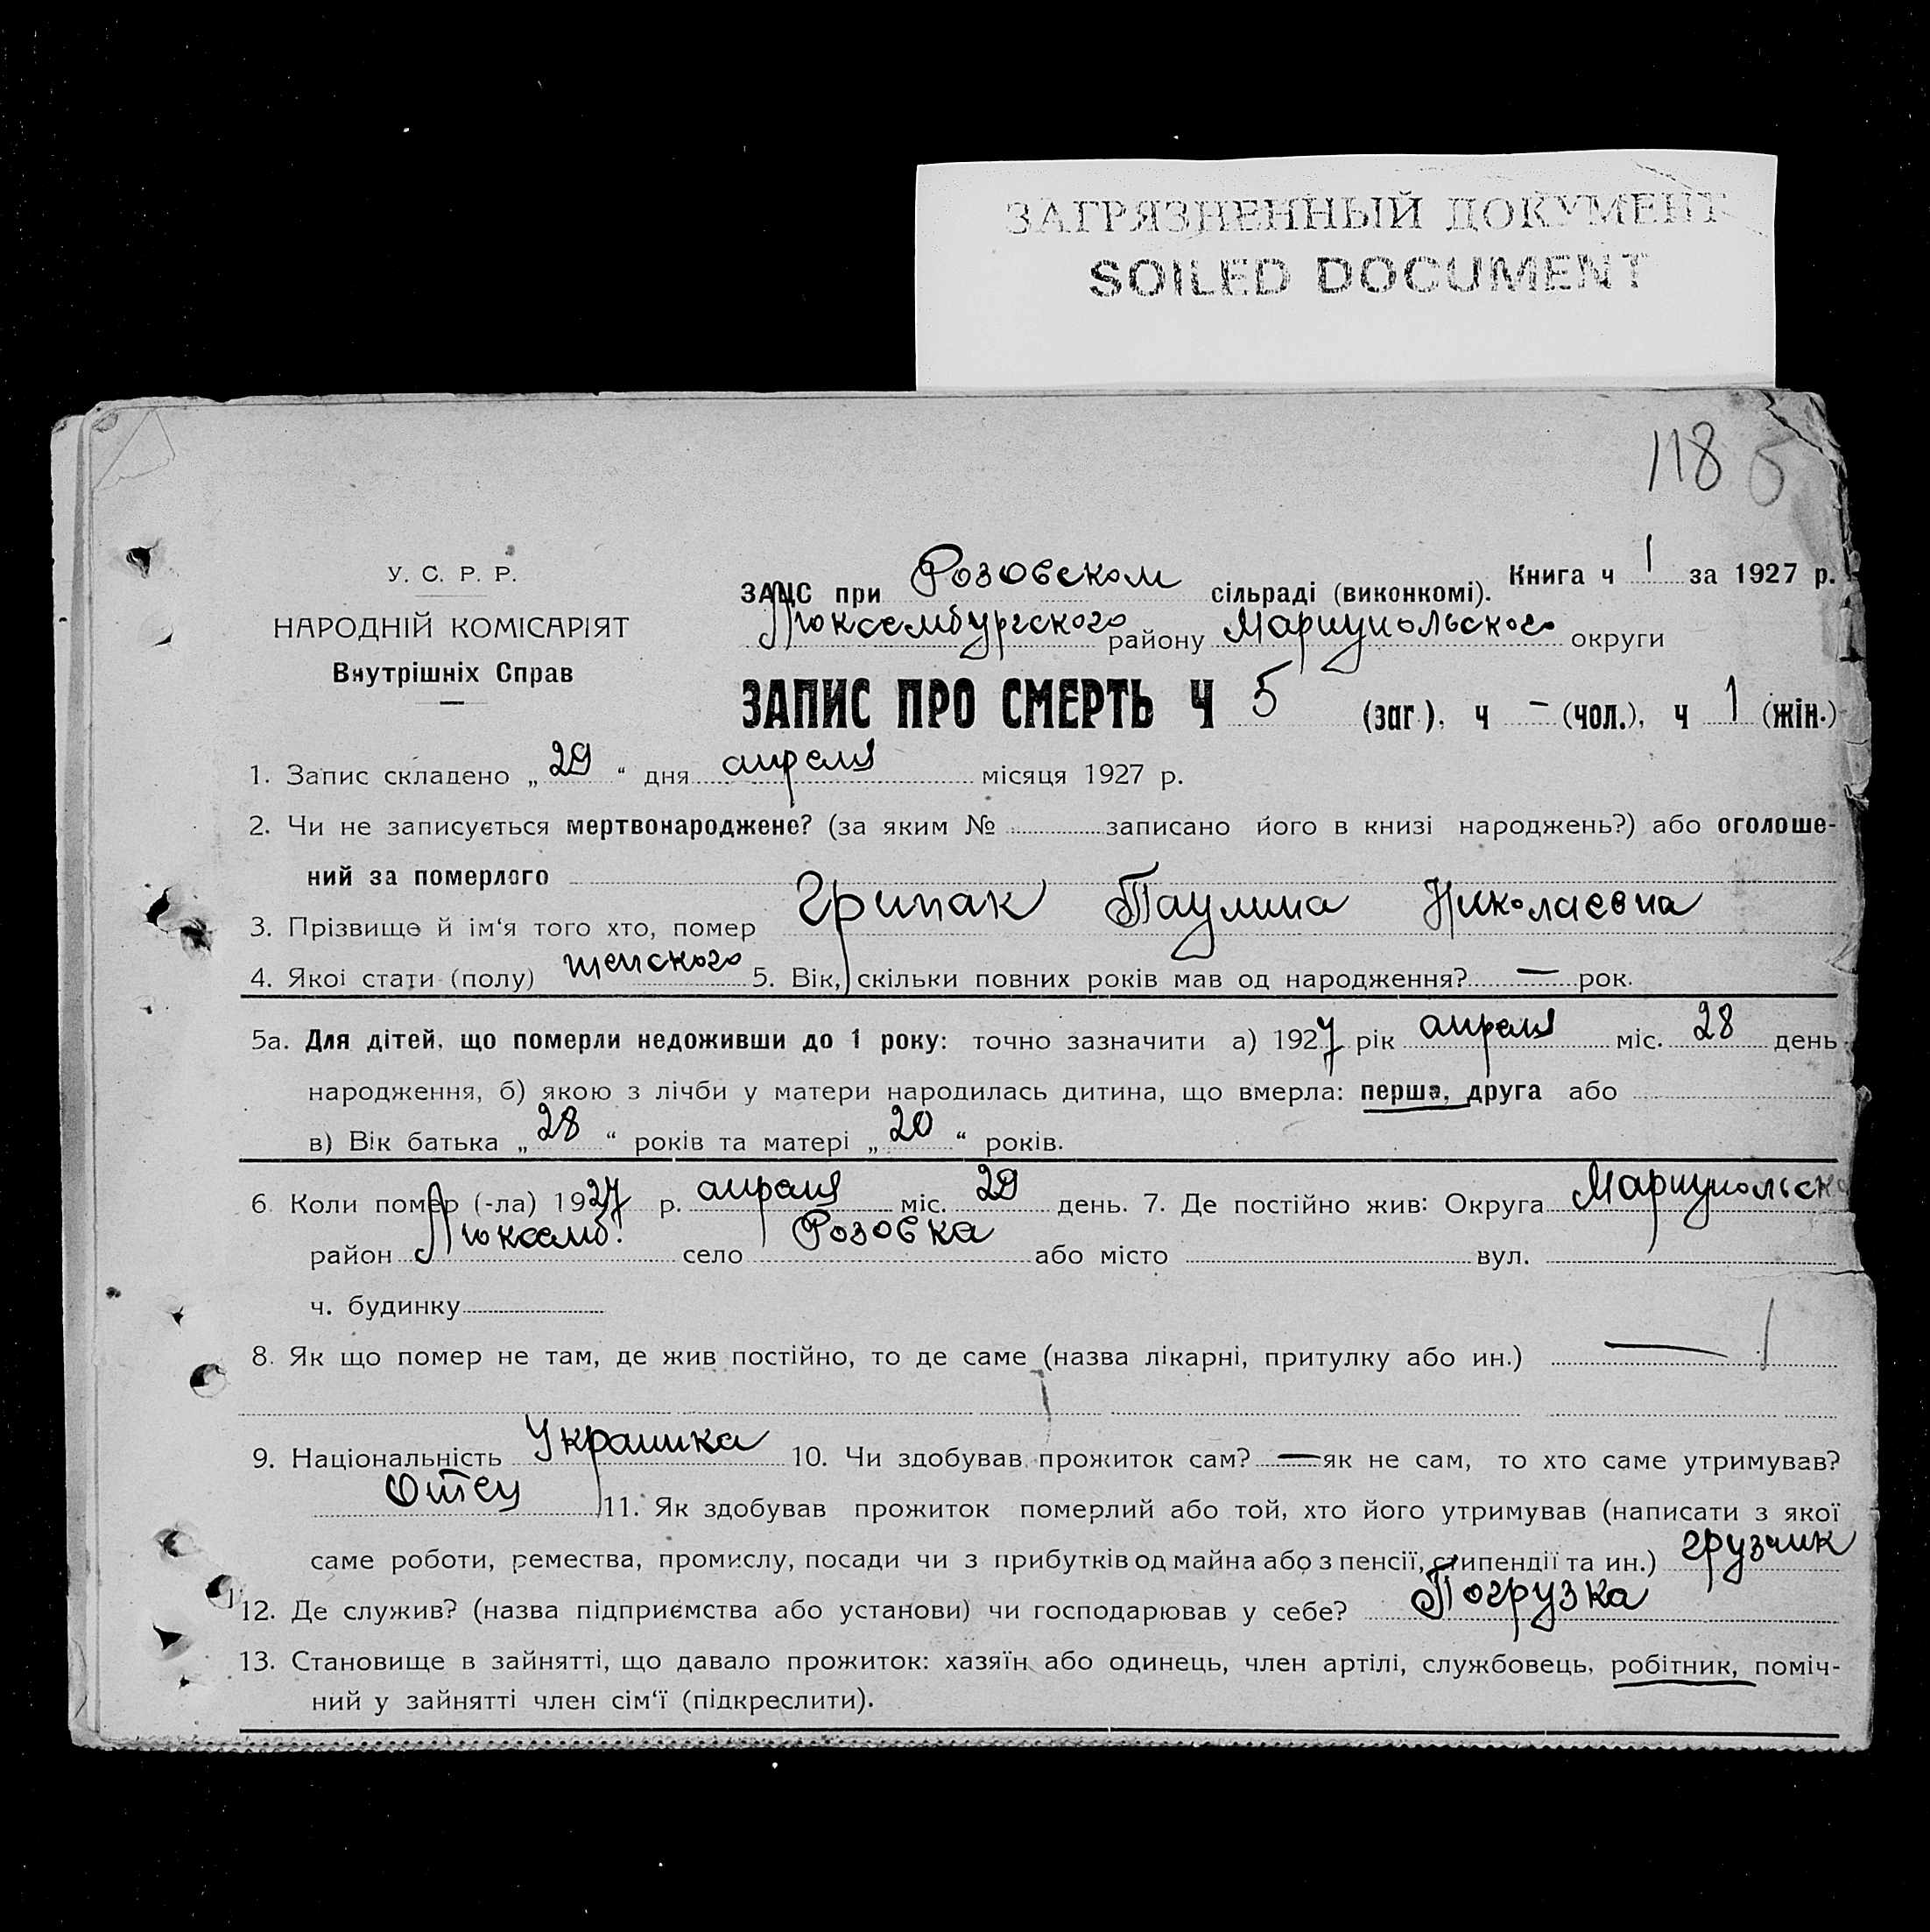 ЗАГРЯЗНЕННЫЙ ДОКУМЕНТ
SOILED DOCUMENT
118
У. С. Р. Р.
НАРОДНІЙ КОМІСАРІЯТ
Внутрішніх Справ
Книга ч 1 за 1927 р.
ЗАЦС при Розовском сільраді (виконкомі).
Люксембургского району Мариупольского округи
ЗАПИС ПРО СМЕРТЬ Ч 5 (заг.), ч – (чол.), ч 1 (жін.)
1. Запис складено „29“ дня апреля місяця 1927 р.
2. Чи не записується мертвонароджене? (за яким № записано його в книзі народжень?) або оголоше-
ний за померлого
3. Прізвище й ім‘я того хто, помер Грипак Паулина Николаевна
4. Якої стати (полу) женского 5. Вік, скільки повних років мав од народження? — рок.
5а. Для дітей, що померли недоживши до 1 року: точно зазначити а) 1927 рік апреля міс. 28 день
народження, б) якою з лічби у матери народилась дитина, що вмерла: перша, друга або
в) Вік батька „28“ років та матері „20“ років.
6. Коли помер (-ла) 1927 р. апреля міс. 29 день. 7. Де постійно жив: Округа Мариупольск
район Люксемб. село Розовка або місто вул.
ч. будинку
8. Як що помер не там, де жив постійно, то де саме (назва лікарні, притулку або ин.) —
9. Національність Украинка 10. Чи здобував прожиток сам? — як не сам, то хто саме утримував?
Отец 11. Як здобував прожиток померлий або той, хто його утримував (написати з якої
саме роботи, ремества, промислу, посади чи з прибутків од майна або з пенсії, стипендії та ин.) грузчик
12. Де служив? (назва підприємства або установи) чи господарював у себе? Погрузка
13. Становище в зайнятті, що давало прожиток: хазяїн або одинець, член артілі, службовець, робітник, поміч-
ний у зайнятті член сім‘ї (підкреслити).